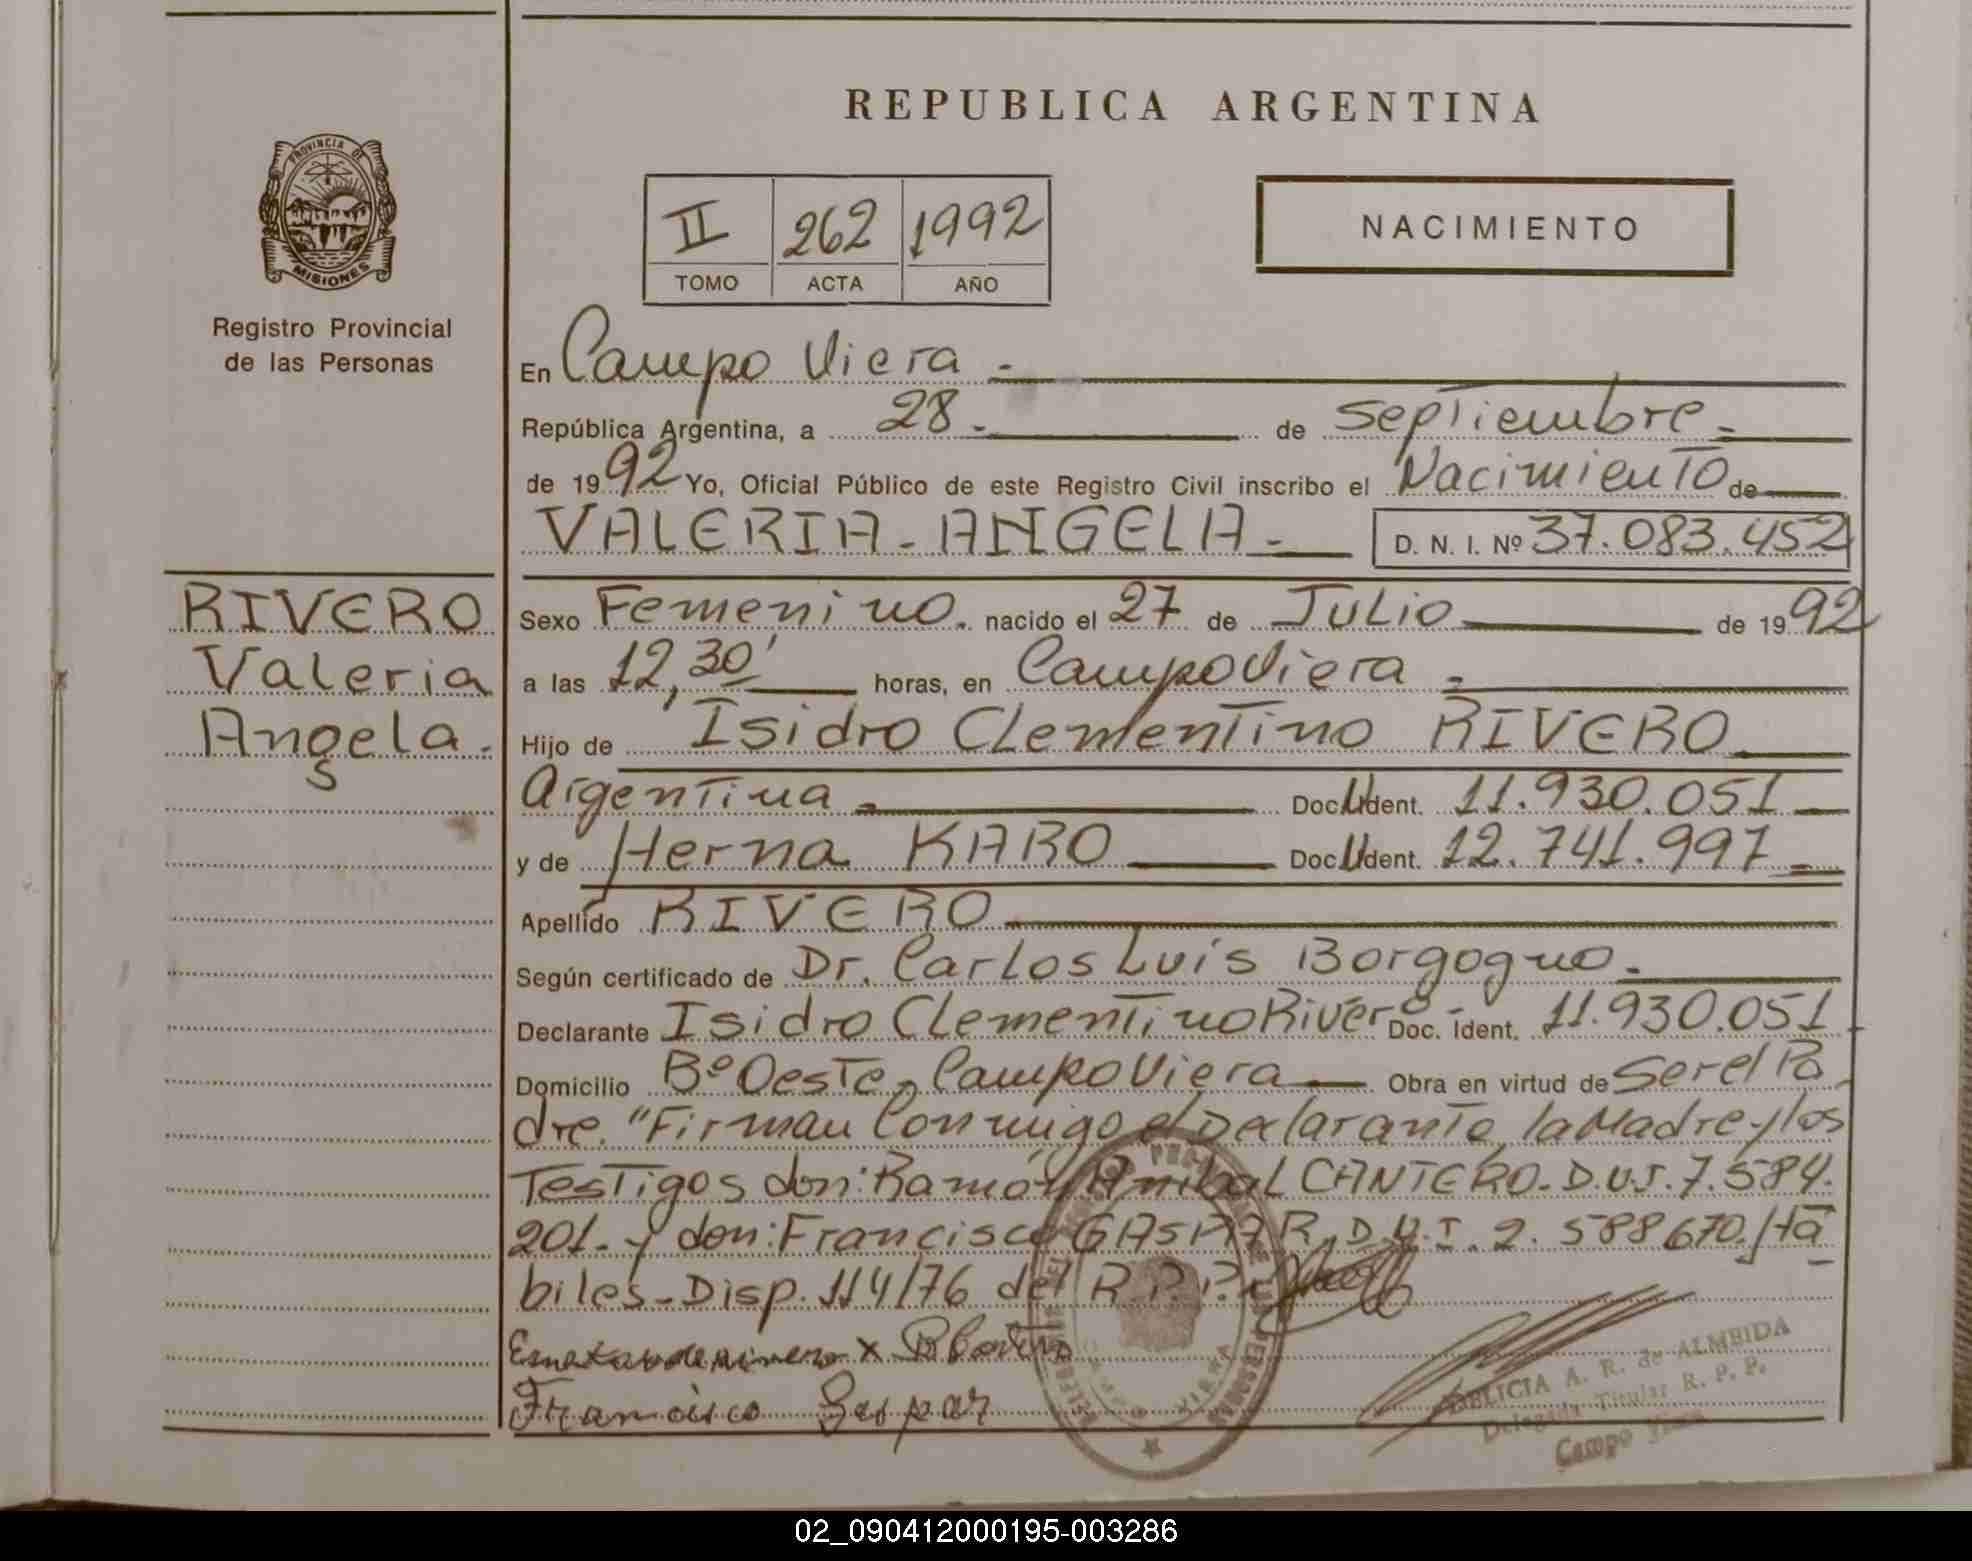 REPUBLICA ARGENTINA
PROVINCIA DE
MISIONES
Registro Provincial
de las Personas
II 262 1992
TOMO ACTA AÑO
NACIMIENTO
En Campo Viera -
República Argentina, a 28.- de Septiembre.-
de 1992 Yo, Oficial Público de este Registro Civil inscribo el Nacimiento de
VALERIA - ANGELA - D. N. I. Nº 37.083.452
RIVERO
Valeria
Angela.
Sexo Femenino. nacido el 27 de Julio de 1992
a las 12,30' horas, en Campo Viera -
Hijo de Isidro Clementino RIVERO
Argentina - Doc. Ident. 11.930.051
y de Herna KARO Doc. Ident. 12.741.997 -
Apellido RIVERO
Según certificado de Dr. Carlos Luis Borgogno.-
Declarante Isidro Clementino Rivero Doc. Ident. 11.930.051
Domicilio Bº Oeste, Campo Viera Obra en virtud de Ser el Pa
dre. "Firman Conmigo el Declarante, la Madre y los
Testigos don: Ramón Anibal CANTERO. D.U.I. 7.584.
201.- y don: Francisco GASPAR, D.U.I. 2.588670. Há
biles - Disp. 114/76 del R.P.P.
Francisco Gaspar
DELICIA A. R. de ALMEIDA
Delegada Titular R. P. P.
Campo Viera
02_090412000195-003286